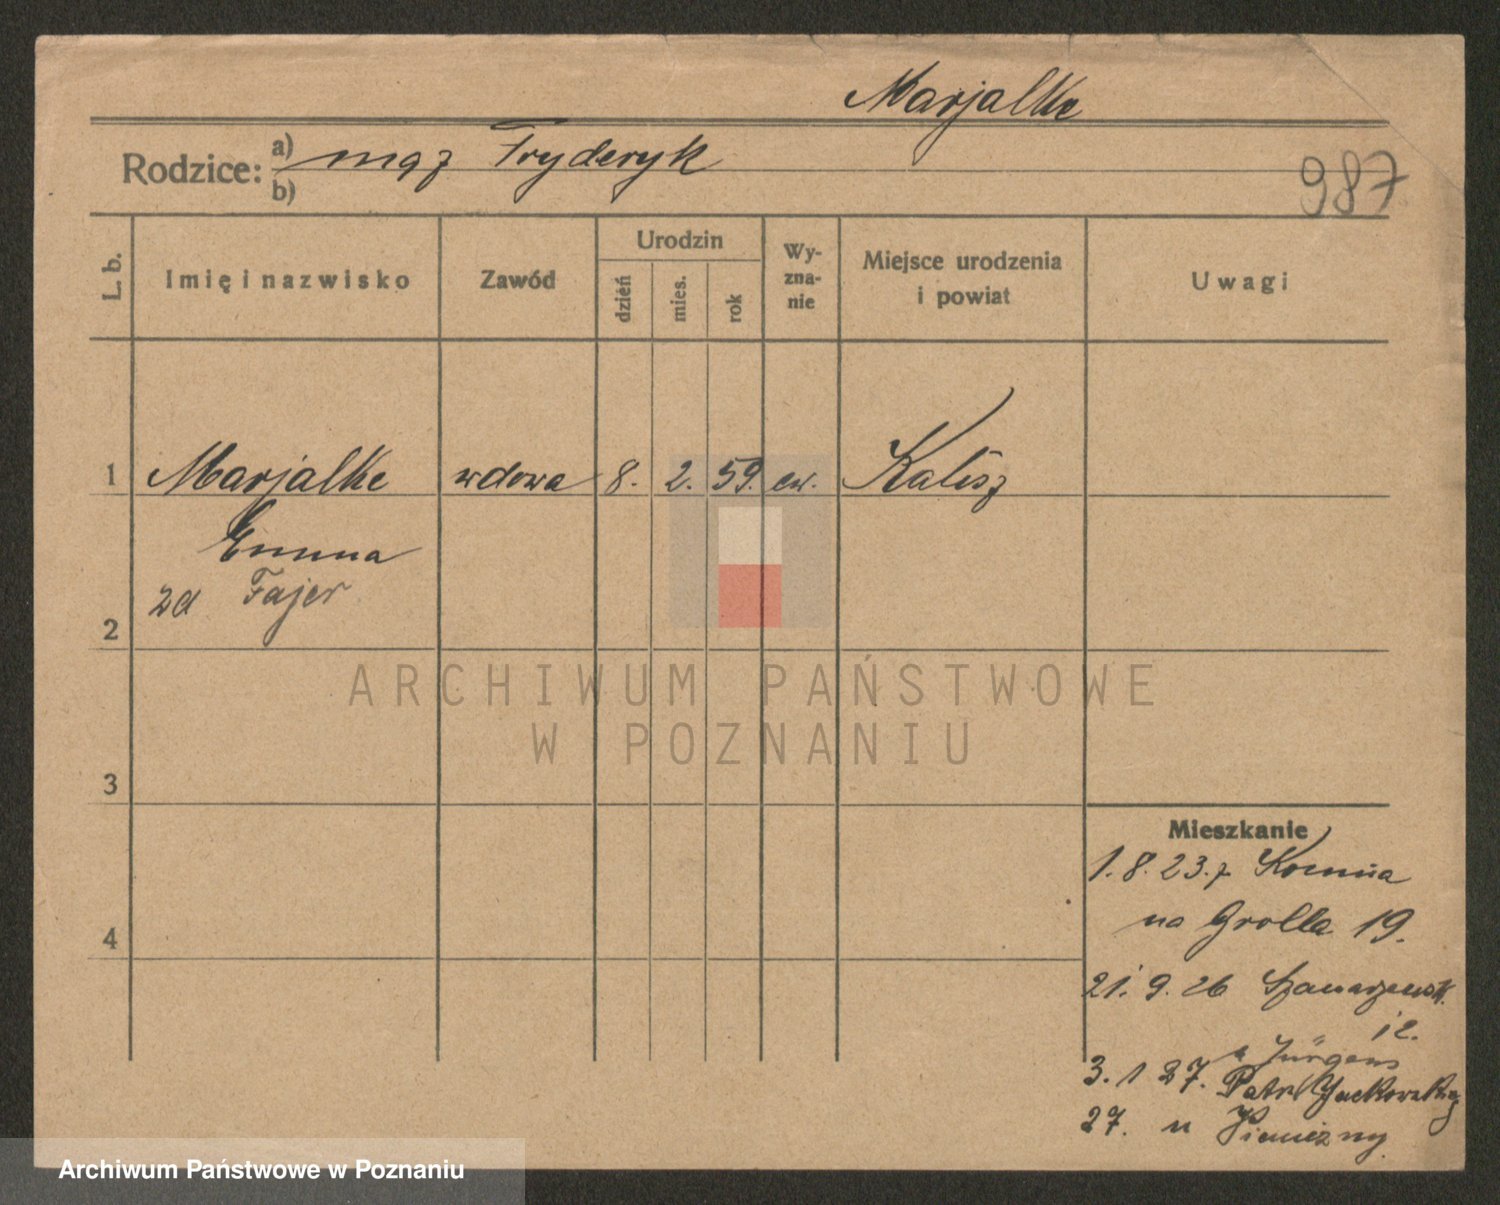 Marjalke
Rodzice: a) mąż Fryderyk
b)
987
L. b.
Imię i nazwisko
Zawód
Urodzin
dzień
mies.
rok
Wy-
zna-
nie
Miejsce urodzenia
i powiat
Uwagi
1 Marjalke wdowa 8. 2. 59. ew. Kalisz
Emma
zd Fajer
2
ARCHIWUM PAŃSTWOWE
W POZNANIU
3
Mieszkanie
1.8.23. z
na Grolla 19.
4
21.9.26
12.
u Jürgens
3. 1 27. Patr Jackowskieg
27. u
Archiwum Państwowe w Poznaniu